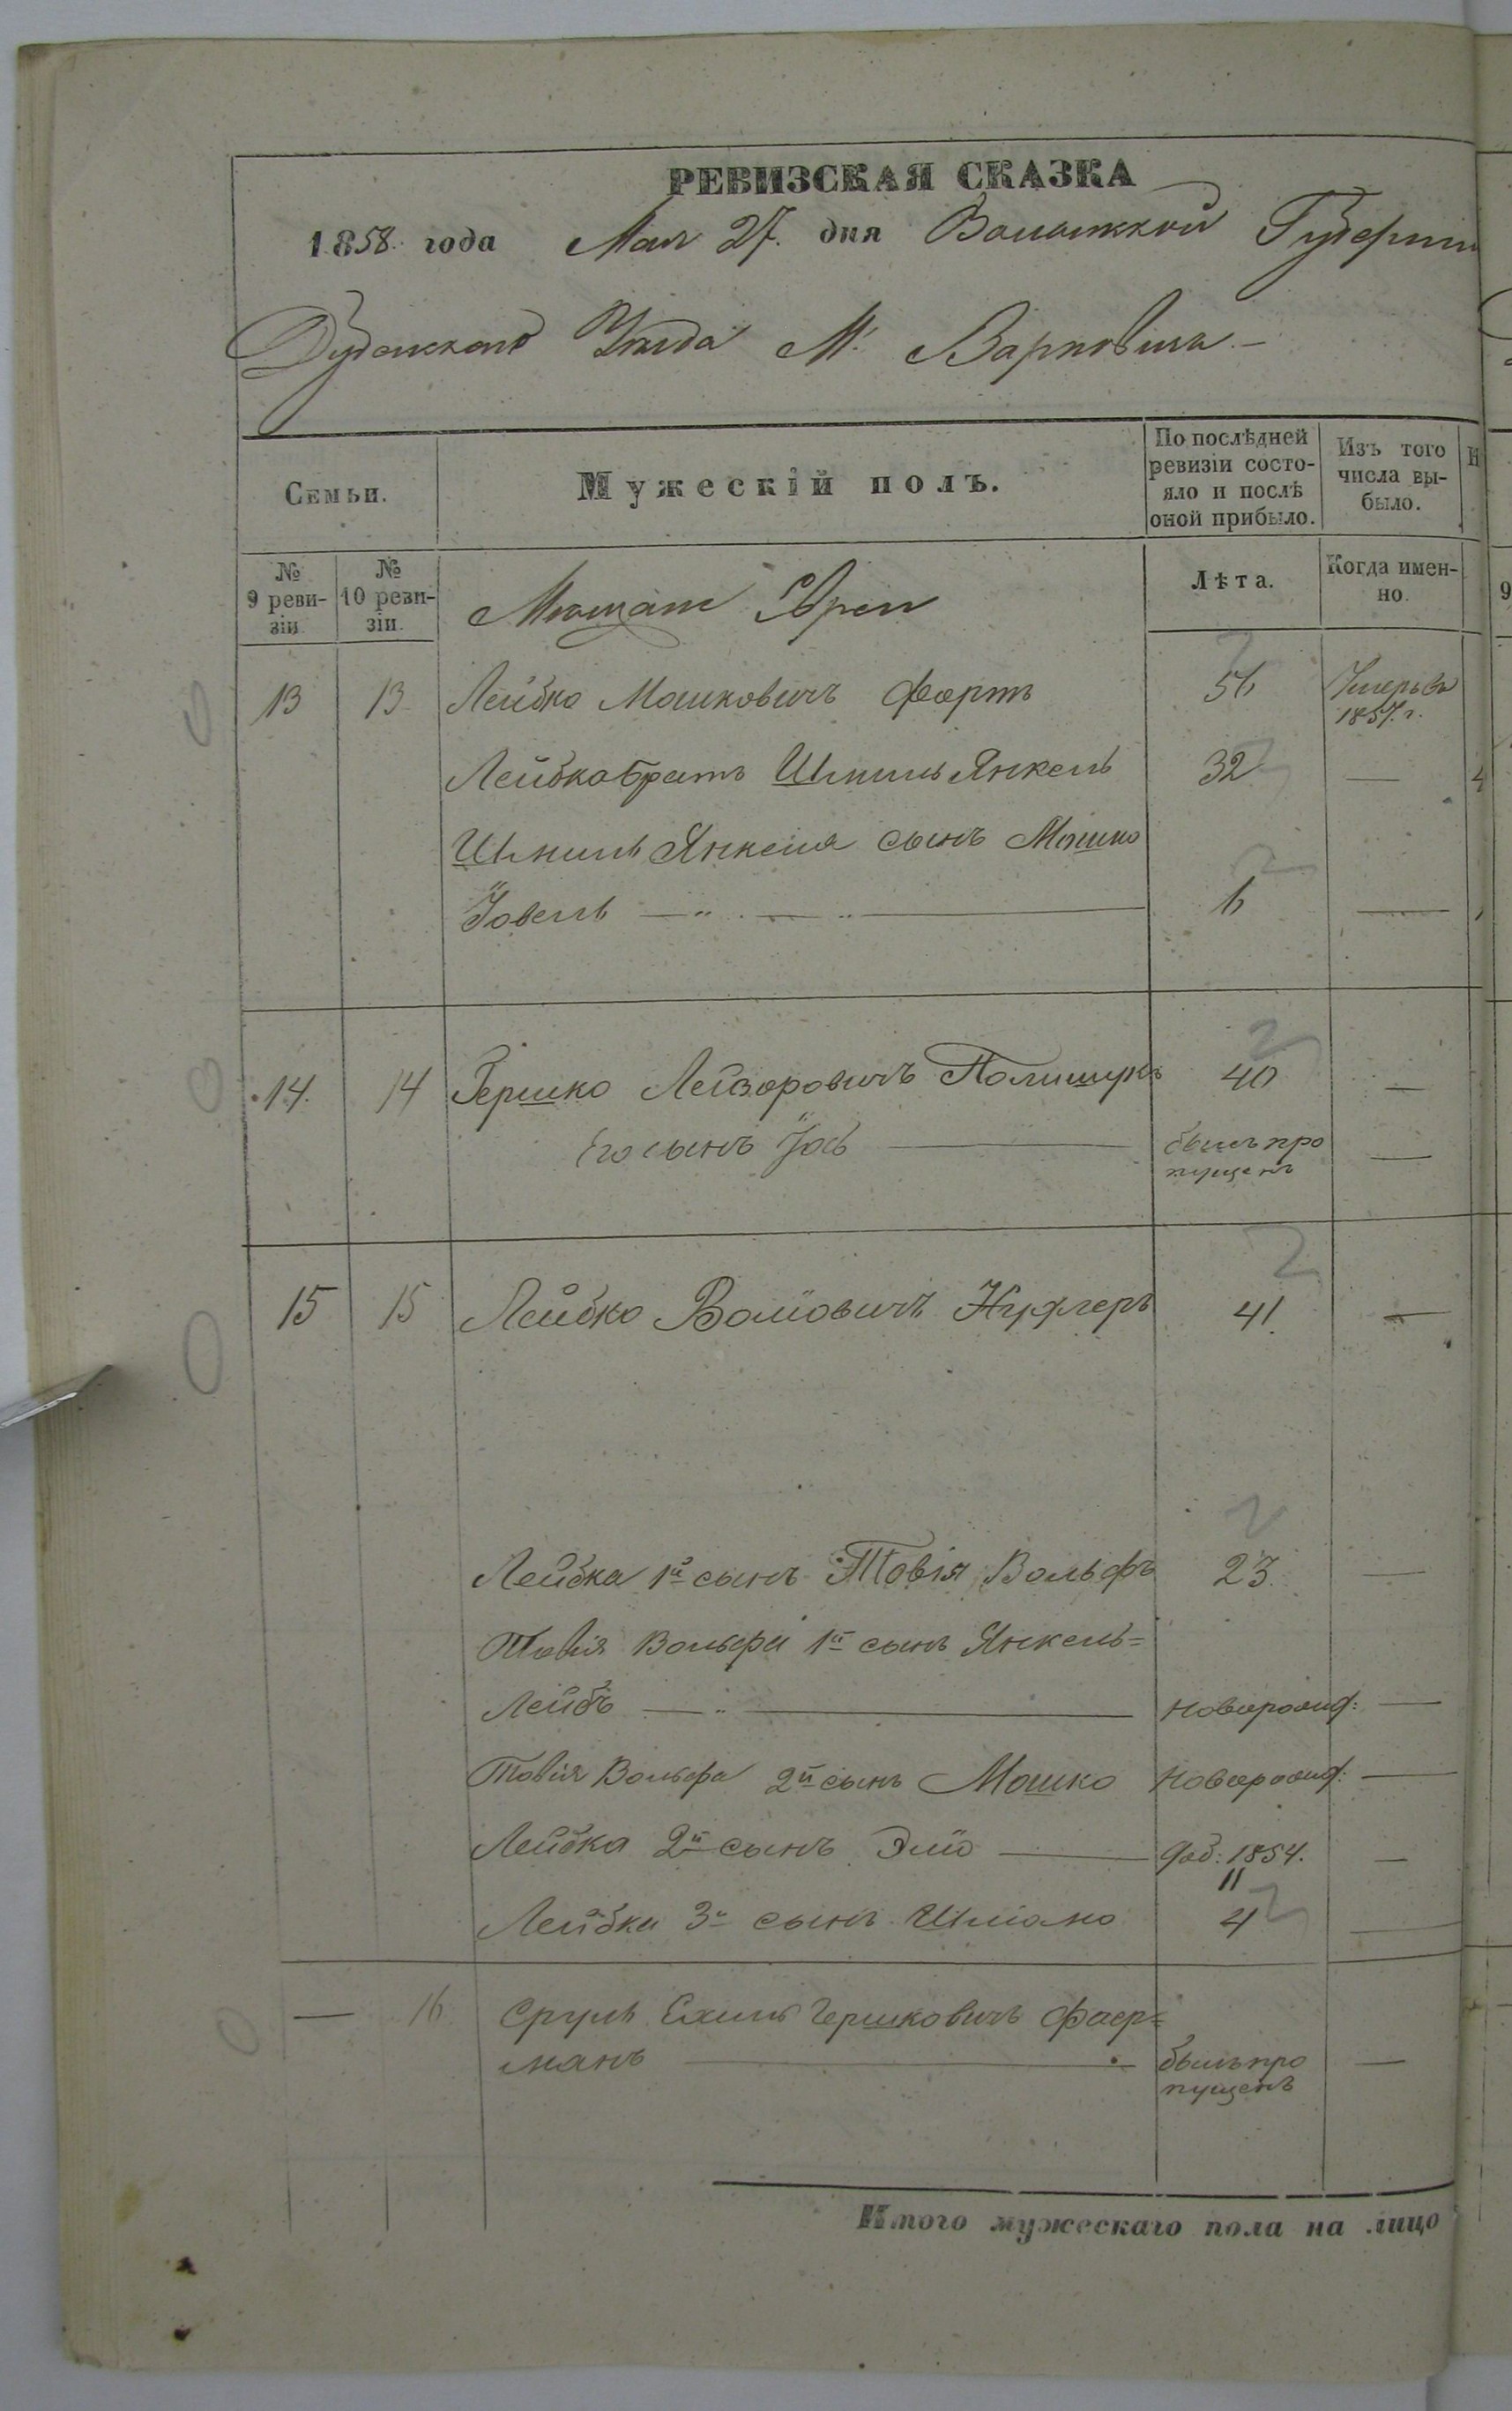 РЕВИЗСКАЯ СКАЗКА
1858. года Мая 27. дня Волынской Губернии
Дубенскаго Уезда М. Варковичь
Семьи.
Мужескій полъ.
По послѣдней ревизіи состо-
яло и послѣ
оной прибыло.
Изъ того
числа вы-
было.
№
9 реви-
зіи
№
10 реви-
зіи.
Мещане Евреи
Лѣта.
Когда имен-
но.
13 13 Лейбко Мошковичъ Фортъ 56 Умеръ въ
1857. г.
Лейбка братъ Шмиль Янкель 32 —
Шмиль Янкеля сынъ Мошко
Іовель 6 —
14. 14 Гершко Лейзоровичъ Полищукъ 40 —
Его сынъ Іось былъ про —
пущенъ
15 15 Лейбко Волiовичъ 41. —
Лейбка 1й сынъ Товія Вольфъ 23. —
Товія Вольфа 1й сынъ Янкель=
Лейбъ новорожд: —
Товія Вольфа 2й сынъ Мошко новорожд: —
Лейбка 2й сынъ Элiо доб: 1854. —
11
Лейбки 3й сынъ Шліомо 4 —
— 16 Сруль Ехиль Гершковичъ Фаер=
манъ былъ про —
пущенъ
Итого мужескаго пола на лицо